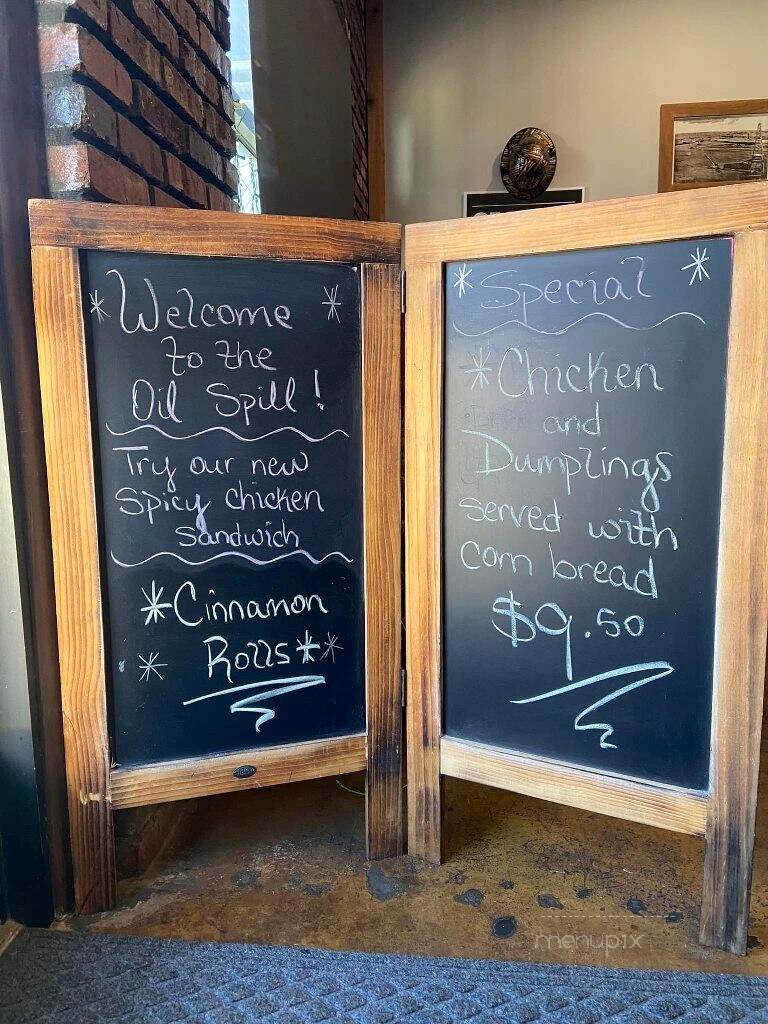 Welcome
to the
Oil Spill!
Try our new
spicy chicken
sandwich
*Cinnamon
Rolls*
*Special*
*Chicken
and
Dumplings
served with
corn bread
$9.50
menupix